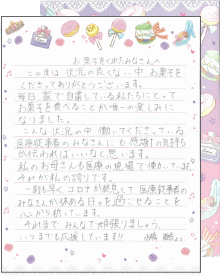 お菓子をくれたみなさんへ
この度は状況の良くない中、お菓子を
くださってありがとうございます。
毎日家で自粛している私たちにとって
お菓子を食べることが唯一の楽しみに
なりました。
こんな状況の中働いてくださっている
医療従事者のみなさんにも感謝の気持ち
が伝わればいいなと思います。
私のお母さんも医療の現場で働いています。
それが私の誇りです。
一刻も早くコロナが終息して医療従事者の
みなさんが休める日々を過ごせることを
心から祈っています。
それまでみんなで頑張りましょう。
いつまでも応援しています!!